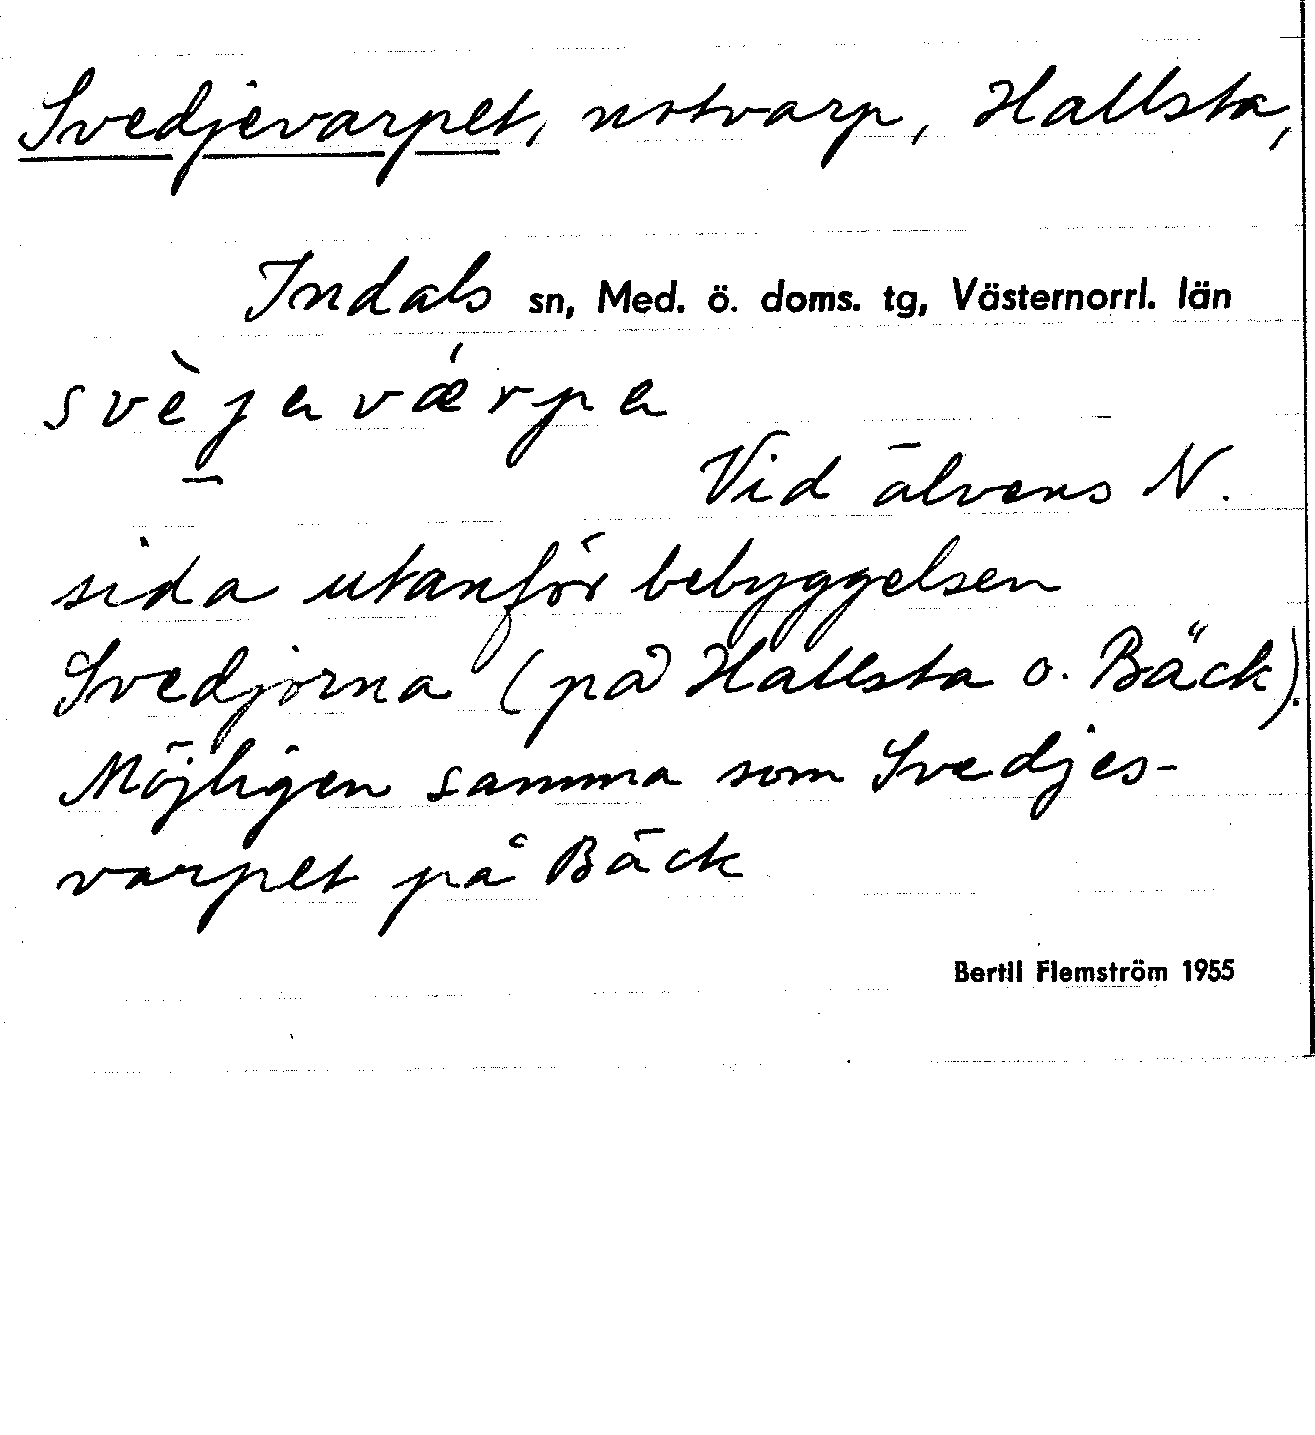 Svedjevarpet, notvarp, Hallsta,
Indals sn, Med. ö. doms. tg, Västernorrl. län
svèjavǽrpa
Vid älvens N.
sida utanför bebyggelsen
Svedjorna (på Hallsta o. Bäck).
Möjligen samma som Svedjes-
varpet på Bäck
Bertil Flemström 1955